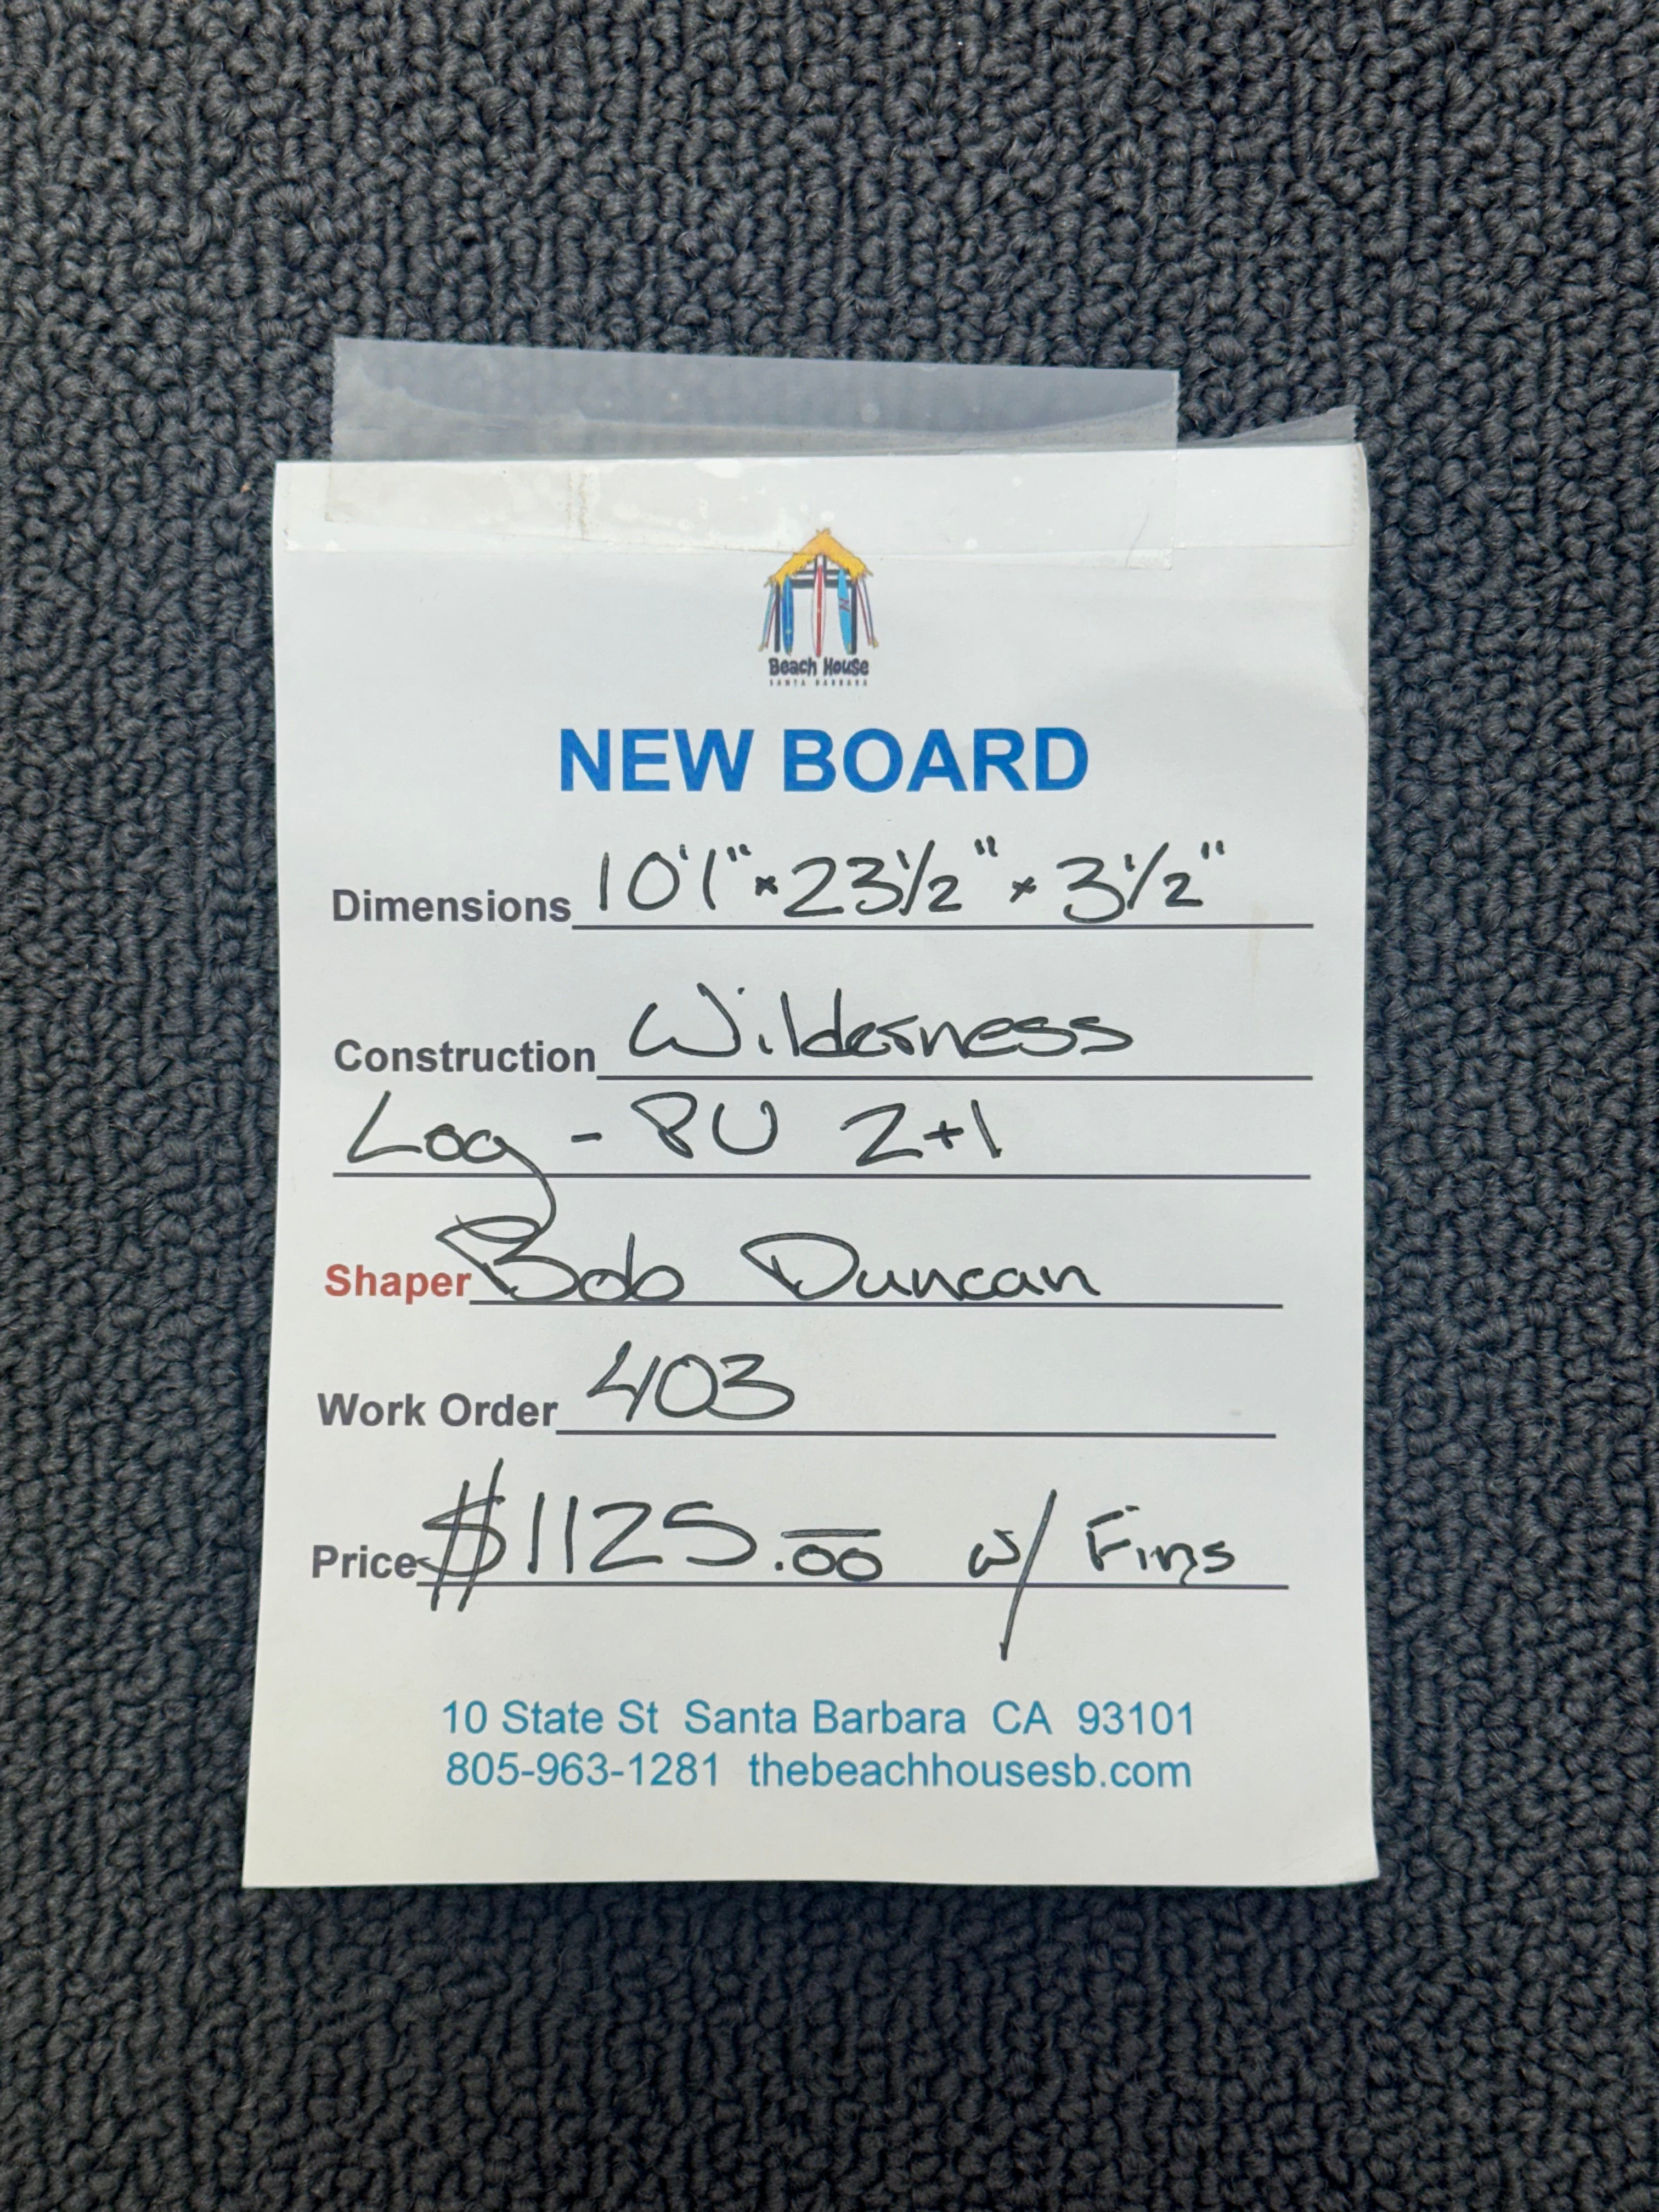 Beach House
SANTA BARBARA
NEW BOARD
Dimensions 10'1" x 23 1/2" x 3 1/2"
Construction Wilderness
Log - PU 2+1
Shaper Bob Duncan
Work Order 403
Price $1125.00 w/ Fins
10 State St Santa Barbara CA 93101
805-963-1281 thebeachhousesb.com